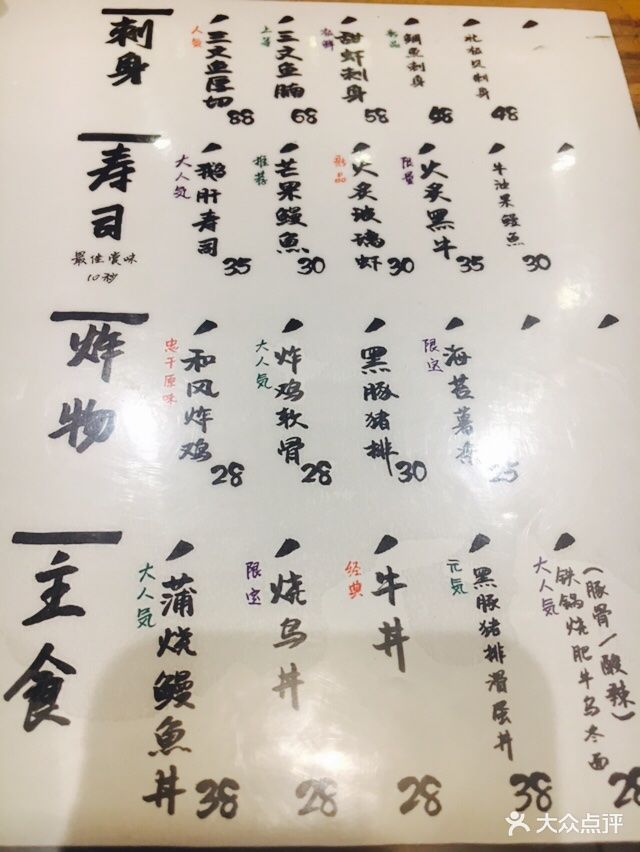 刺身
人気
三文鱼厚切
88
上等
三文鱼腩
68
甜虾刺身
58
新品
鲷鱼刺身
68
北极贝刺身
48
寿司
最佳赏味
10秒
大人気
鹅肝寿司
35
推荐
芒果鳗魚
30
新品
火炙玻璃虾
30
限量
火炙黑牛
35
牛油果鳗魚
30
炸物
忠于原味
和风炸鸡
28
大人気
炸鸡软骨
28
黑豚猪排
30
限定
海苔薯香
25
主食
大人気
蒲烧鳗魚丼
38
限定
烧鸟丼
28
经典
牛丼
28
元気
黑豚猪排滑蛋丼
38
大人気
铁锅烧肥牛乌冬面
(豚骨/酸辣)
28
大众点评